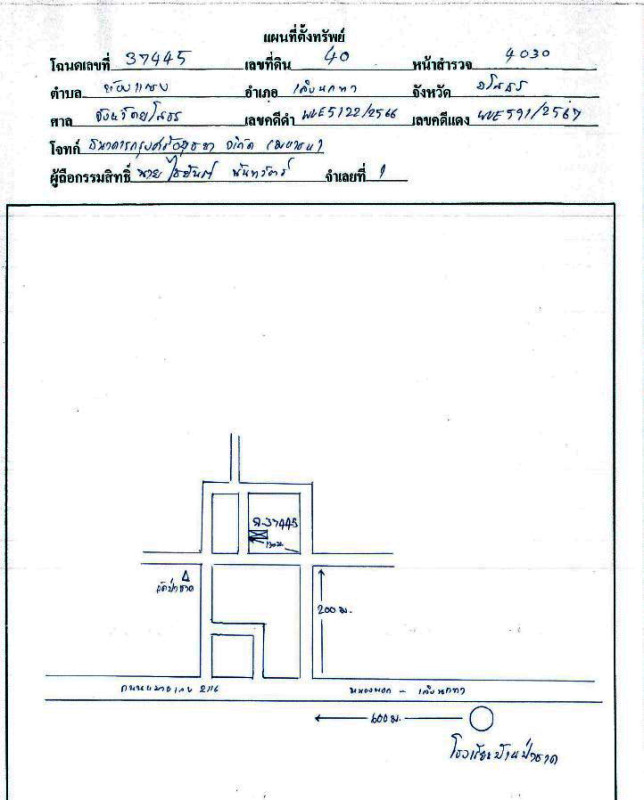 แผนที่ตั้งทรัพย์
โฉนดเลขที่ 37445 เลขที่ดิน 40 หน้าสำรวจ 4030
ตำบล ห้องแซง อำเภอ เลิงนกทา จังหวัด ยโสธร
ศาล จังหวัดยโสธร เลขคดีดำ ผบE5122/2566 เลขคดีแดง ผบE591/2567
โจทก์ ธนาคารกรุงศรีอยุธยา จำกัด (มหาชน)
ผู้ถือกรรมสิทธิ์ นาย จำเลยที่ 1
ฉ.37445
วัดป่าชาด
200 ม.
ถนนหมายเลข 2116 หนองพอก - เลิงนกทา
600 ม.
โรงเรียนบ้านป่าชาด